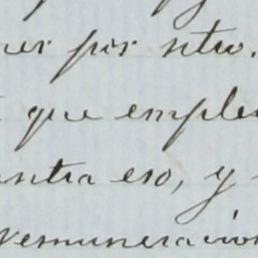 por otro.
que emple
ntra eso, y
remuneración